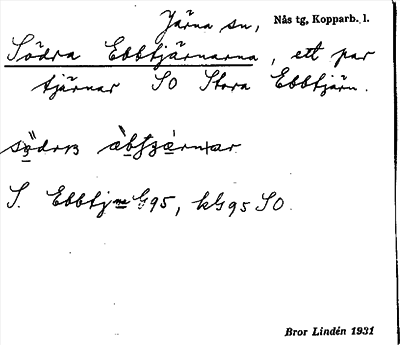 Järna sn, Nås tg, Kopparb. l.
Södra Ebbtjärnarna, ett par
tjärnar SO Stora Ebbtjärn.
S. Ebbtj G95, kG95 SO.
Bror Lindén 1931